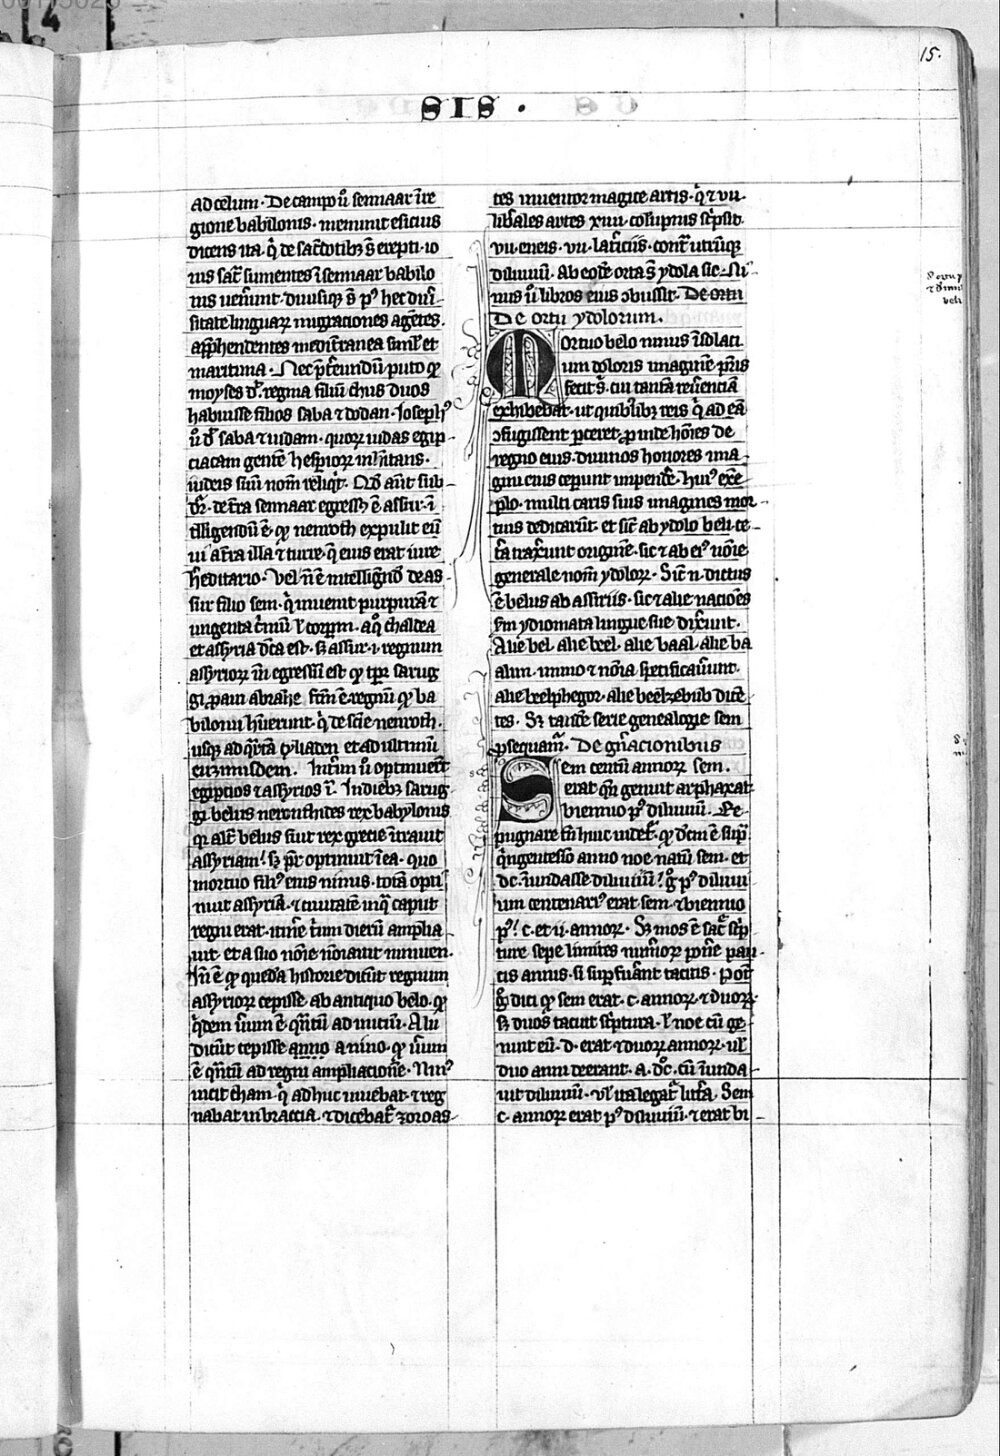 15.
SIS .
ad celum · De campo ů sennaar ī re
gione babilonis · meminit esicius
dicens ita · q̇ de sac̄dotibꝫ s̄ erepti · io
uis sac̄ sumentes ī sennaar babilo
nis uen̄unt · diuisiqꝫ s̄ pꝰ hec diu̅
sitate linguaꝝ migraciones agētes ·
app̄hendentes medit̄ranea simĺ et
maritima · Nec p̄t̄eundū puto ꝙ
moyses dt̄ · regma filiū chus duos
habuisse filios saba ⁊ dodan · Josephꝰ
ů dt̄ saba ⁊ iudam · quoꝝ iudas egip-
ciacam gentē hesꝑioꝝ inh̄itans ·
iudeis suū nom̄ reliq̇t · Qd̄ aūt sub-
dt̄ᷣ · de t̄ra sennaar egressꝰ ē assur · ī
tll̄igendū ē · ꝙ nemroth expulit eū
ui a t̄ra illa ⁊ turre · q̄ eius erat iure
h̄editario · Vel n̄ ē intelligēdū de as-
sur filio sem · q̇ inuenit purpurā ⁊
ungenta c̄niū ł corpꝝ · a q̊ chaldea
et assyria dc̄a est · sꝫ assur · i · regnum
assyrioꝝ īn egressū est ꝙ tꝑr sarug
gi ꝓaui abrahe fc̄m ē · regnū ꝙ ba
biloni hūerunt · q̇ de scīe nenroth ·
usqꝫ ad q̄rtā ꝙliaden et ad ultimū
eiꝰmisdem . Int̄im ů optinuer̄t
egiptios ⁊ assyrios ī · In diebꝫ sarug
gi · belus nemrothides rex babylonis
qͥ alt̄ belus fuit rex grecie ītrauit
assyriam! sꝫ pͬ optinuit ī ea · quo
mortuo filiꝰ eius ninus · totā opti
nuit assyriā · ⁊ ciuitatē in q̄ caput
regni erat · itin̄e t̄um dierū amplia
uit · et a suo nōie nōiauit niniuen ·
Iñ ē ꝙ quedā historie dicūt regnum
assyrioꝝ cepisse · ab antiquo belo · ꝙ
q̇dem ūum ē q̄ntū ad iniciū · Alii
dicūt cepisse anno a nino · ꝙ ūum
ē q̄ntū ad regni ampliacionē · Ninꝰ
uicit cham · q̇ adhuc uiuebat · ⁊ reg
nabat in braccia · ⁊ dicebat̄ zoroas-
tes inuentor magice artis · q̇ ⁊ vii
lib̄ales artes xiiii · colūpnis sc̄psit ·
vii · eneis · vii · lat̄iciis · cont̄ utrūqꝫ
diluuiū · Ab eodē orta s̄ ydola sic · Ni-
nus ů libros eius ↄbussit · De ortu
De ortu ydolorum ·
Mortuo belo ninus ī solaci
um doloris imaginē pr̄is
fecit s̄ · cui tantā reu̅enciā
exhibebat · ut quibuslibꝫ reis q̇ ad eā
ↄfugissent ꝑceret · ꝓinde hōies de
regno eius · diuinos honores ima
gini eius ceperunt impende̅ · huiꝰ exē
plo · multi caris suis imagines mor-
tuis dedicar̄ut · et sic̄ ab ydolo beli ce-
t̄a trax̄unt originē · sic ⁊ ab eiꝰ nōie
generale nom̄ ydoloꝝ · Sic̄ n̄ dictus
ē belus ab assiriis · sic ⁊ alie nacioēs
sm̄ ydiomata lingue sue dix̄unt ·
Alie bel · alie beel · alie baal · alie ba
alim · immo ⁊ nōīa sp̄cificauūnt ·
alie beelphegor · alie beelzebub dicē
tes · Sꝫ tandē serie genealogie sem
ꝓsequamᷣ · De gn̄acionibus
Sem centū annoꝝ sem ·
erat qn̄ genuit arphaxat
biennio pꝰ diluuiū · Re-
pugnare tn̄ huic uidet̄ · ꝙ dc̄m ē supͣ
q̇ngentesīo anno noe natū sem · et
dc̄ · īundasse diluuiū! ḡ pꝰ diluui
um centenariꝰ erat sem · ⁊ biennio
pꝰ! c · et ii · annoꝝ · Sꝫ mos ē sac̄ sc̄p
ture sepe limites nūm̄oꝝ pon̄e pau-
cis annis · si suꝑfu̅ant tacitis · Pot̄
ḡ dici ꝙ sem erat · c · annoꝝ · ⁊ duoꝝ ·
sꝫ duos tacuit sc̄ptura · ł noe cū ge-
nuit eū · d · erat ⁊ duoꝝ annoꝝ · uł
duo anni deerant · a · dc̊ · cū īunda-
uit diluuiū · uł ita legat̄ litt̄a · Sem
c · annoꝝ erat pꝰ diluuiū · ⁊ erat bi-